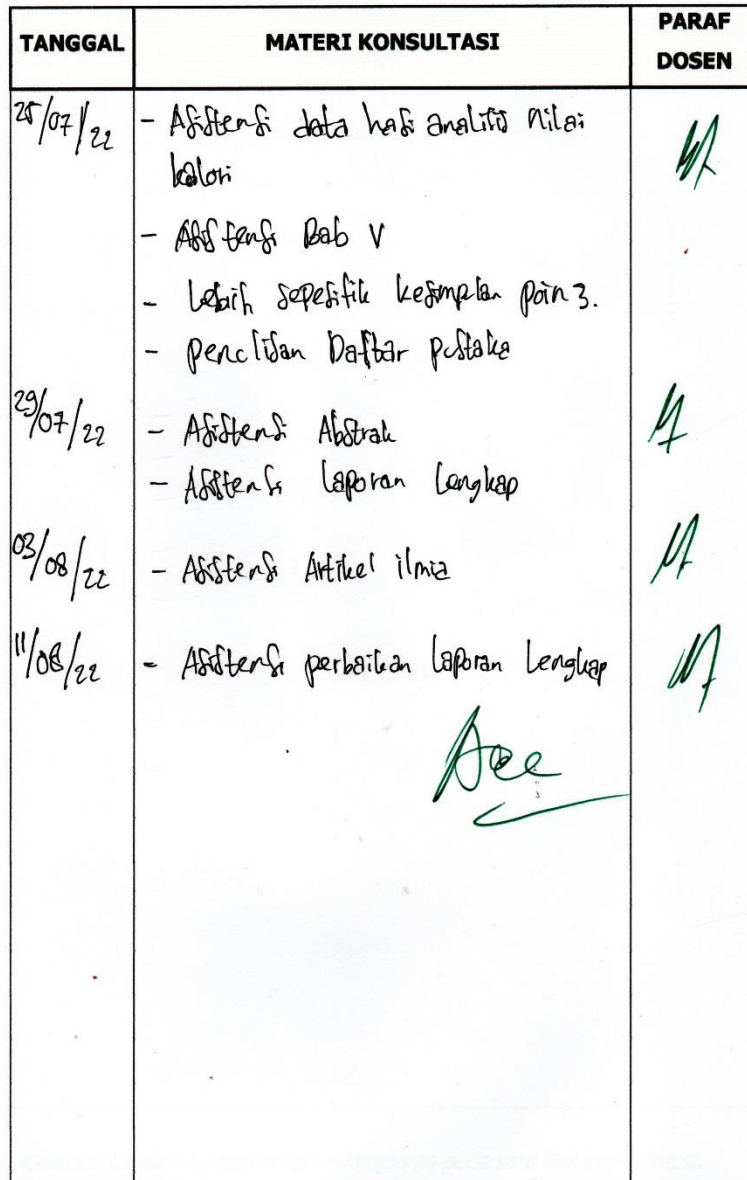 TANGGAL
MATERI KONSULTASI
PARAF
DOSEN
25/07/22
- Asistensi data hasi analisis nilai
kalori
- Asistensi Bab V
- Lebih sepesifik kesimpulan poin 3.
- penulisan Daftar pustaka
29/07/22
- Asistensi Abstrak
- Asistensi laporan lengkap
03/08/22
- Asistensi Artikel ilmia
11/08/22
- Asistensi perbaikan laporan lengkap
Acc